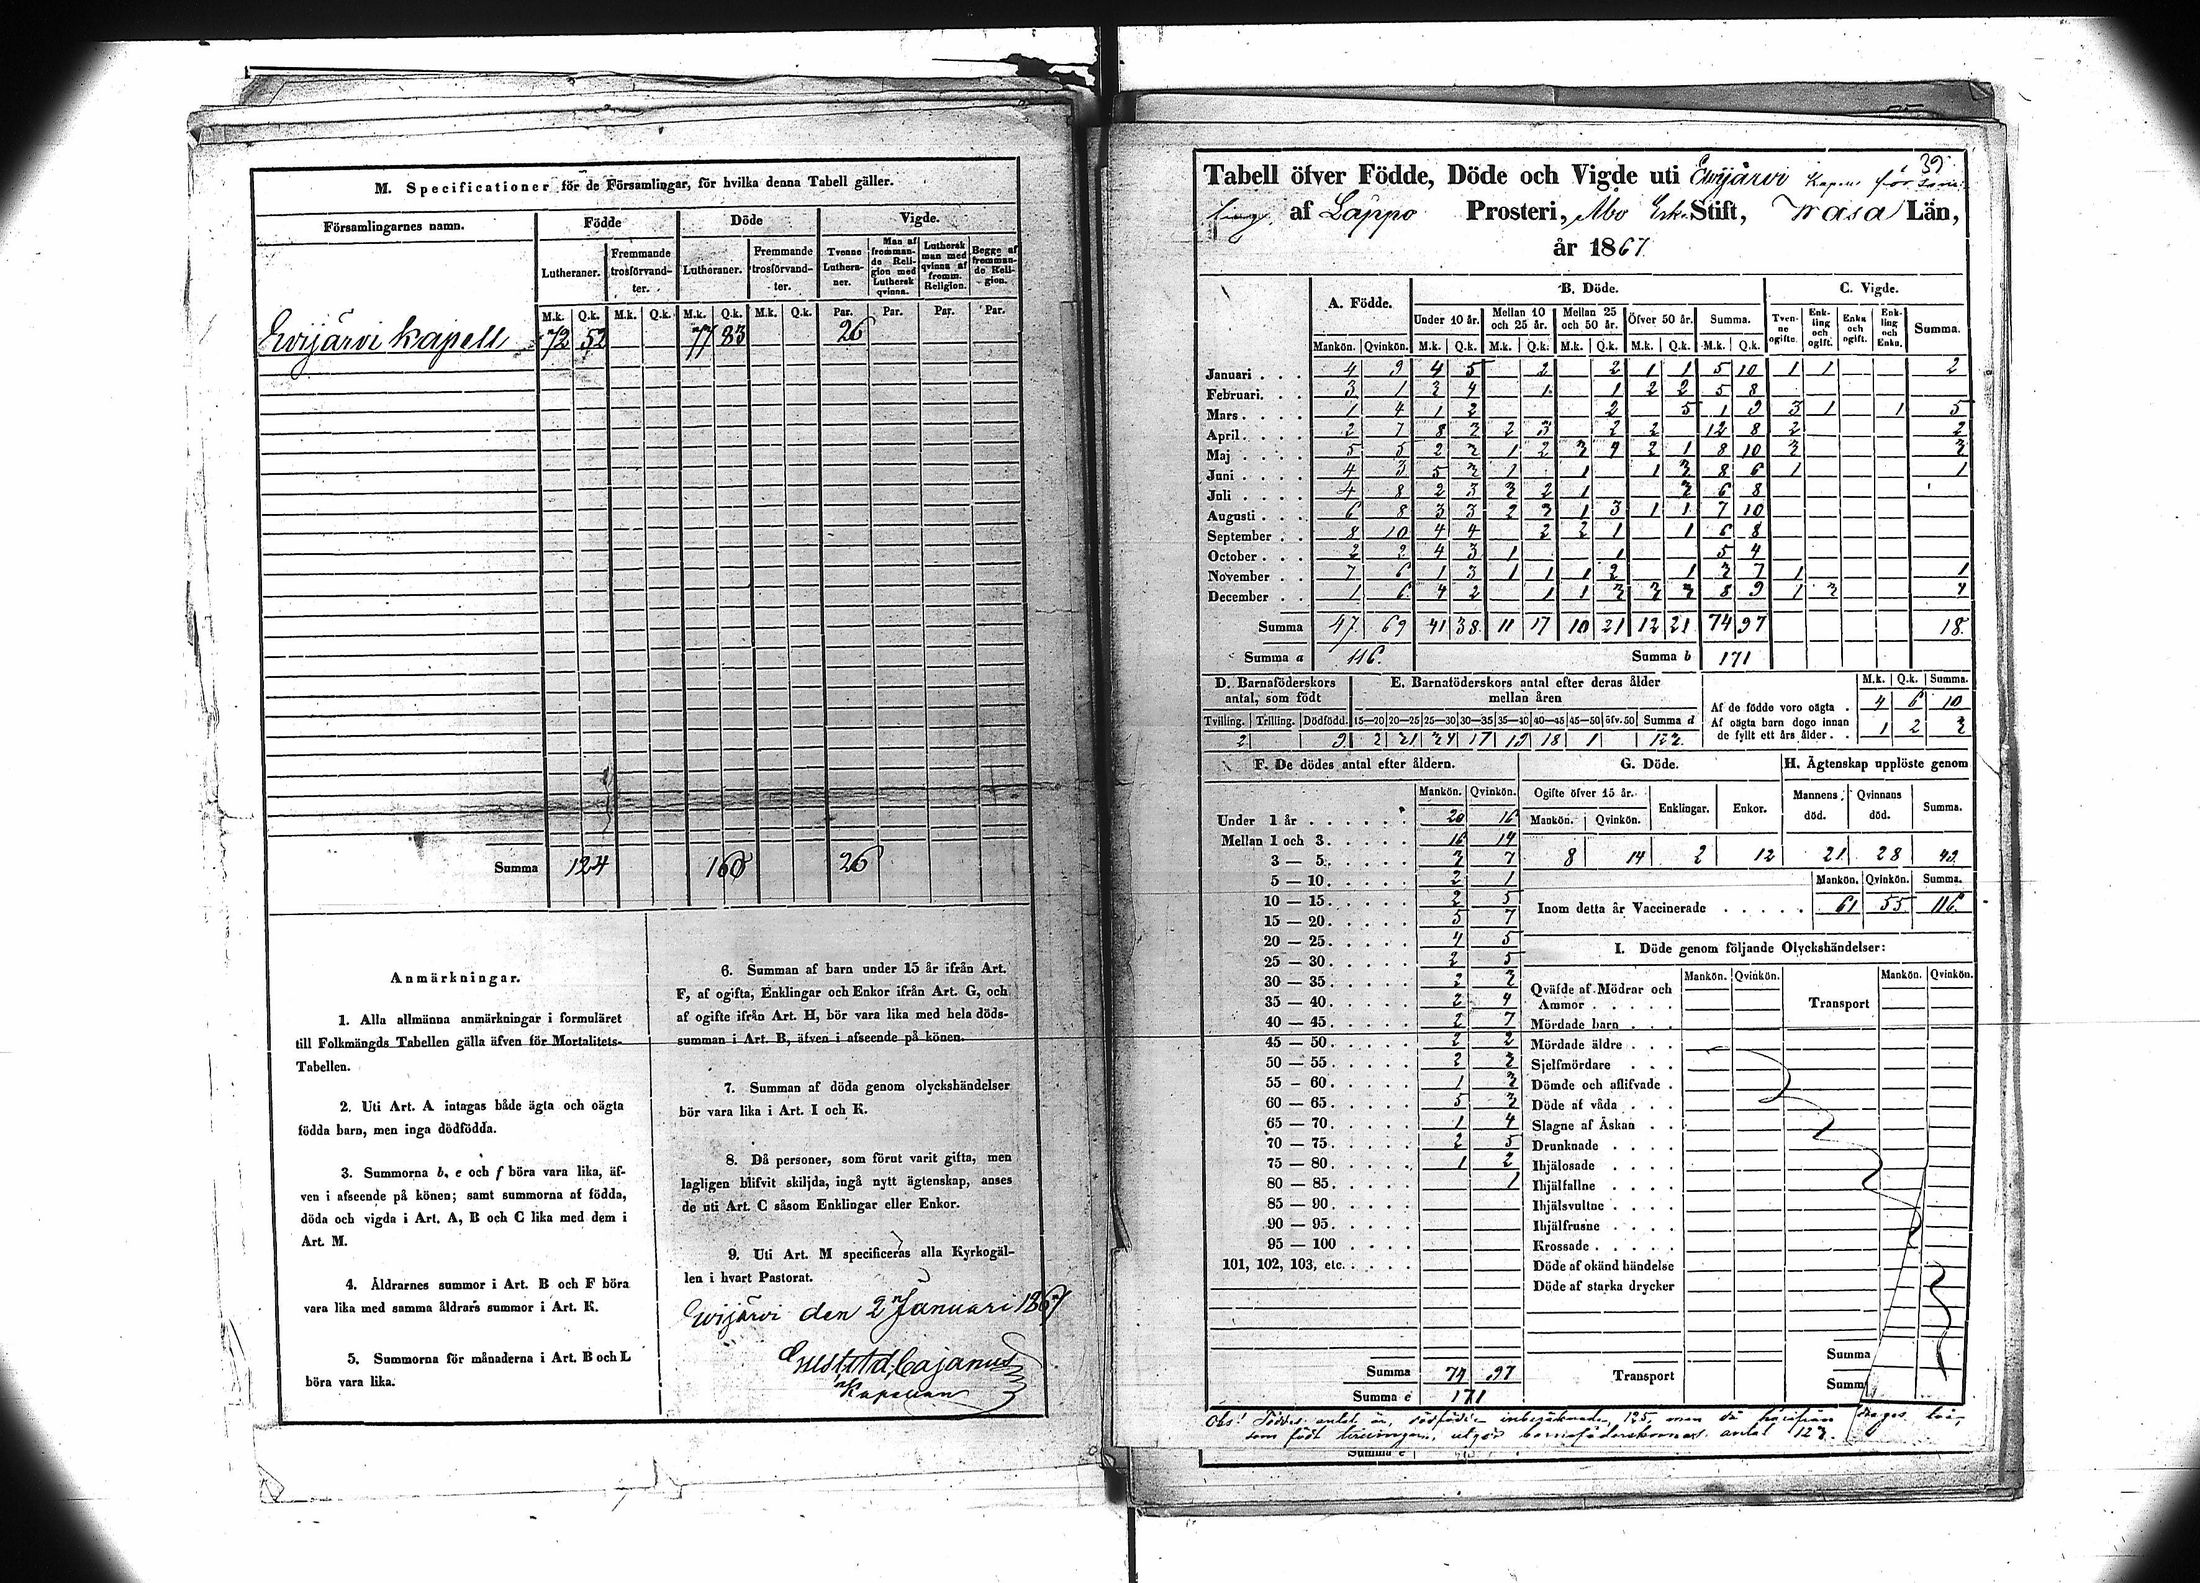 M. Specificationer för de Församlingar, för hvilka denna Tabell gäller.
Församlingarnes namn. Födde Döde Vigde.
Lutheraner. Fremmande trosförvandter. Lutheraner. Fremmande trosförvandter. Tvenne Lutheraner. Man af fremmande Religion med Luthersk qvinna. Luthersk man med qvinna af fremm. Religion. Begge af fremmande Religion.
M.k. Q.k. M.k. Q.k. M.k. Q.k. M.k. Q.k. Par. Par. Par. Par.
Ewijärvi Kapell 72 52 77 83 26
Summa 124 160 26
Anmärkningar.
1. Alla allmänna anmärkningar i formuläret
till Folkmängds Tabellen gälla äfven för Mortalitets-
Tabellen.
2. Uti Art. A intagas både ägta och oägta
födda barn, men inga dödfödda.
3. Summorna b, e och f böra vara lika, äf-
ven i afseende på könen; samt summorna af födda,
döda och vigda i Art. A, B och C lika med dem i
Art. M.
4. Åldrarnes summor i Art. B och F böra
vara lika med samma åldrars summor i Art. K.
5. Summorna för månaderna i Art. B och L
böra vara lika.
6. Summan af barn under 15 år ifrån Art.
F, af ogifta, Enklingar och Enkor ifrån Art. G, och
af ogifte ifrån Art. H, bör vara lika med hela döds-
summan i Art. B, äfven i afseende på könen.
7. Summan af döda genom olyckshändelser
bör vara lika i Art. I och K.
8. Då personer, som förut varit gifta, men
lagligen blifvit skiljda, ingå nytt ägtenskap, anses
de uti Art. C såsom Enklingar eller Enkor.
9. Uti Art. M specificeras alla Kyrkogäl-
len i hvart Pastorat.
Ewijärvi den 2 Januari 1867
Gust. Ad. Cajanus
Kapellan
39
Tabell öfver Födde, Döde och Vigde uti Ewijärvi
af Lappo Prosteri, Åbo Erke Stift, Wasa Län,
år 1867
A. Födde. B. Döde. C. Vigde.
Under 10 år. Mellan 10 och 25 år. Mellan 25 och 50 år. Öfver 50 år. Summa. Tvenne ogifte. Enkling och ogift. Enka och ogift. Enkling och Enka. Summa.
Mankön. Qvinkön. M.k. Q.k. M.k. Q.k. M.k. Q.k. M.k. Q.k. M.k. Q.k.
Januari 4 9 4 5 2 2 1 1 5 10 1 1 2
Februari 3 1 3 4 1 1 2 2 5 8
Mars 1 4 1 2 2 5 1 9 3 1 1 5
April 2 7 8 3 2 3 2 2 12 8 2 2
Maj 5 5 2 3 1 2 3 4 2 1 8 10 3 3
Juni 4 3 5 3 1 1 1 3 8 6 1 1
Juli 4 8 2 3 3 2 1 3 6 8
Augusti 6 8 3 3 2 3 1 3 1 1 7 10
September 8 10 4 4 2 2 1 1 6 8
October 2 2 4 3 1 1 5 4
November 7 6 1 3 1 1 1 2 1 3 7 1 1
December 1 6 4 2 1 1 3 3 3 8 9 1 3 4
Summa 47 69 41 38 11 17 10 21 12 21 74 97 18
Summa a 116. Summa b 171
D. Barnaföderskors antal, som födt
E. Barnaföderskors antal efter deras ålder mellan åren
M.k. Q.k. Summa.
Af de födde voro oägta 4 6 10
Af oägta barn dogo innan de fyllt ett års ålder 1 2 3
Tvilling. Trilling. Dödfödd. 15—20 20—25 25—30 30—35 35—40 40—45 45—50 öfv. 50 Summa d
2 9 2 31 34 17 19 18 1 123
F. De dödes antal efter åldern.
Mankön. Qvinkön.
Under 1 år 20 16
Mellan 1 och 3 16 14
3 — 5 3 7
5 — 10 2 1
10 — 15 2 5
15 — 20 5 7
20 — 25 4 5
25 — 30 2 5
30 — 35 2 3
35 — 40 2 4
40 — 45 2 7
45 — 50 2 2
50 — 55 2 3
55 — 60 1 3
60 — 65 5 3
65 — 70 1 4
70 — 75 2 5
75 — 80 1 2
80 — 85 1
85 — 90
90 — 95
95 — 100
101, 102, 103, etc.
Summa 74 97
Summa e 171
G. Döde. H. Ägtenskap upplöste genom
Ogifte öfver 15 år. Enklingar. Enkor. Mannens död. Qvinnans död. Summa.
Mankön. Qvinkön.
8 14 2 12 21 28 49
Mankön. Qvinkön. Summa.
Inom detta år Vaccinerade 61 55 116
I. Döde genom följande Olyckshändelser:
Mankön. Qvinkön. Mankön. Qvinkön.
Qväfde af Mödrar och Ammor Transport
Mördade barn
Mördade äldre
Sjelfmördare
Dömde och aflifvade
Döde af våda
Slagne af Åskan
Drunknade
Ihjälosade
Ihjälfallne
Ihjälsvultne
Ihjälfrusne
Krossade
Döde af okänd händelse
Döde af starka drycker
Summa
Transport Summ
Obs! Föddes antal är, dödfödde inberäknade, 125, men då härifrån drages två,
som födt tvillingar, utgör barnaföderskornas antal 123.
Summa e